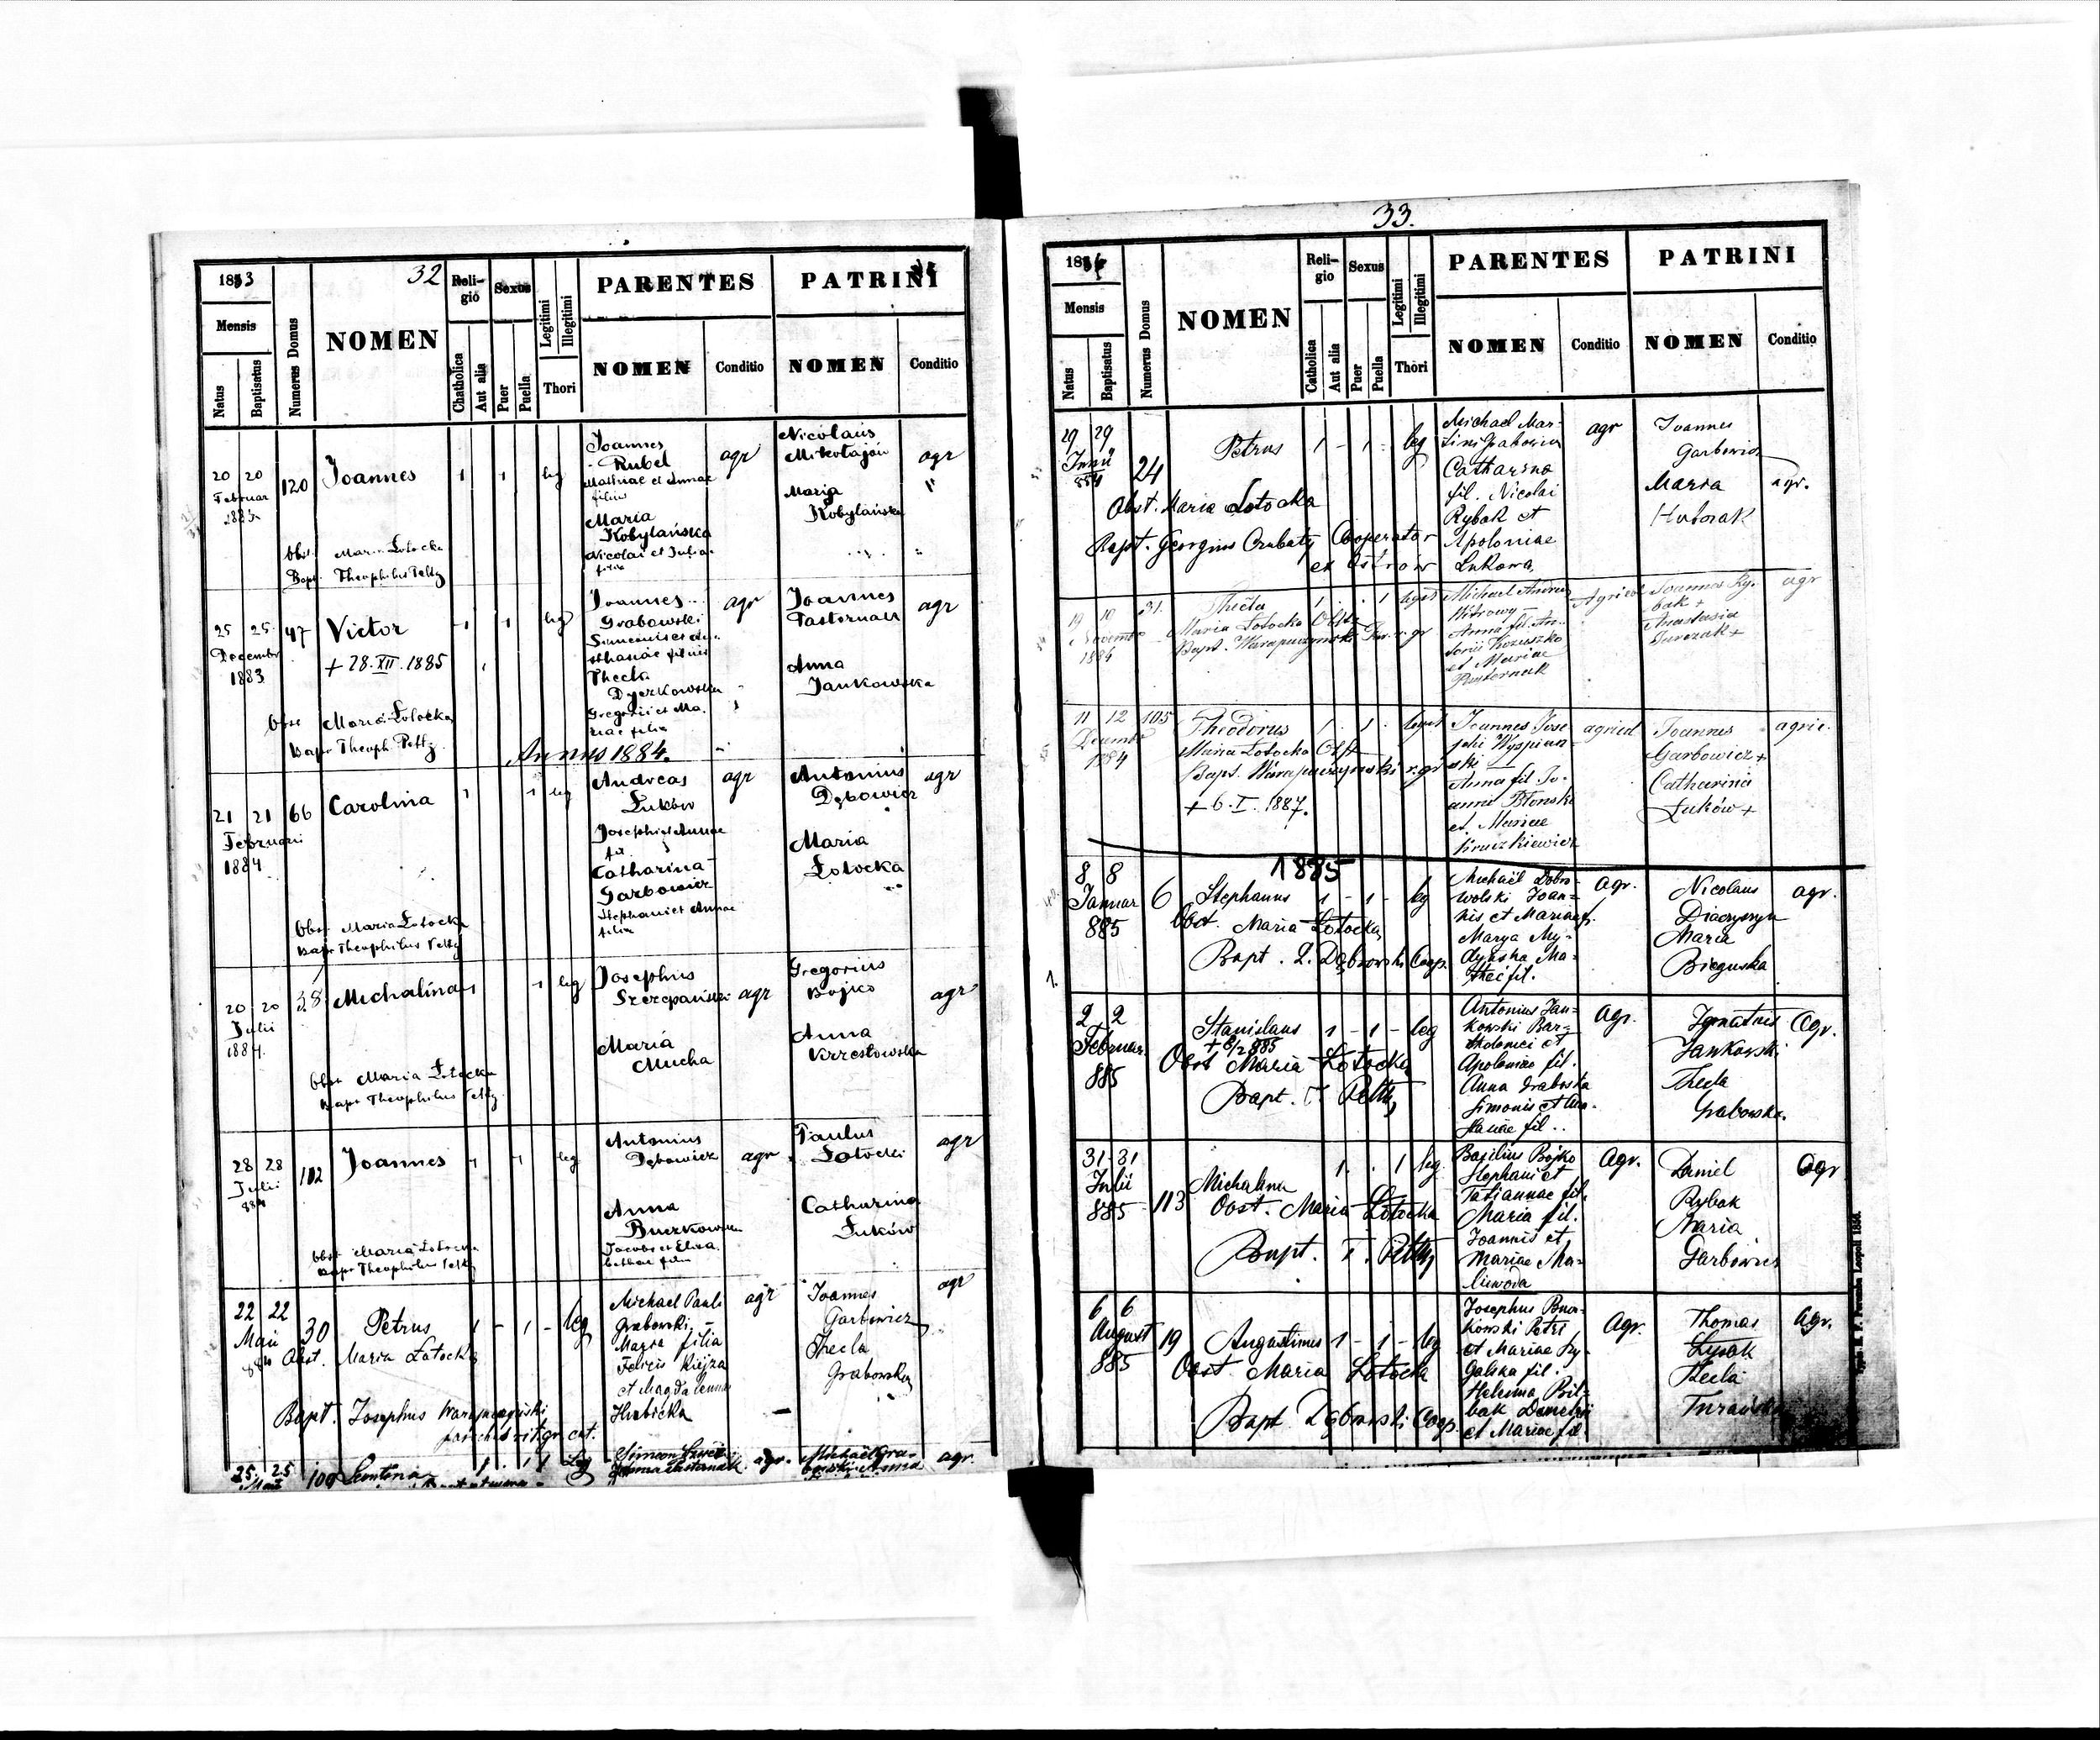 32
1883
Mensis
Natus
Baptisatus
Numerus Domus
NOMEN
Religio
Catholica
Aut alia
Sexus
Puer
Puella
Legitimi
Illegitimi
Thori
PARENTES
NOMEN
Conditio
PATRINI
NOMEN
Conditio
20 20 120 Joannes 1 1 leg
Februar
Joannes
Rubel
Mathiae et Annae
filius
Maria
Kobylańska
Nicolai et Juliae
filia
agr
Nicolaus
Mikołajów
Maria
Kobylańska
agr
Obst. Maria Łotocka
Bapt. Theophilus Petty
25 25 47 Victor 1 1 leg
Decembr
1883
+ 28. XII. 1885
Joannes
Grabowski
filius
Thecla
Dyczkowska
Gregorii et Ma-
riae filia
agr
Joannes
Pasternak
Anna
Jankowska
agr
Obst Maria Łotocka
Bapt Theoph. Petty
Annus 1884.
21 21 66 Carolina 1 1 leg
Februarii
1884
Andreas
Łuków
Josephi et Annae
fil.
Catharina
Garbowicz
Stephani et Annae
filia
agr
Antonius
Dębowicz
Maria
Łotocka
agr
Obst Maria Łotocka
Bapt Theophilus Petty
20 20 38 Michalina 1 1 leg
Julii
1884.
Josephus
Szczepański
Maria
Mucha
agr
Gregorius
Bojko
Anna
Krzestowska
agr
Obst Maria Łotocka
Bapt Theophilus Petty
28 28 102 Joannes 1 1 leg
Julii
884
Antonius
Dębowicz
Anna
Buczkowska
Jacobi et Eliza-
bethae filia
agr
Paulus
Łotocki
Catharina
Łuków
agr
Obst Maria Łotocka
Bapt Theophilus Petty
22 22 30 Petrus 1 - 1 - leg
Maii
Obst. Maria Łotocka
Michael Pauli
Grabowski
Marya filia
et Magdalenae
Hrabicka
agr
Joannes
Garbowicz
Thecla
Grabowska
agr
Bapt. Josephus
25 25 109 1 1 leg
Maii
agr.
Michael Gra-
bowski Anna
agr.
33.
1884
Mensis
Natus
Baptisatus
Numerus Domus
NOMEN
Religio
Catholica
Aut alia
Sexus
Puer
Puella
Legitimi
Illegitimi
Thori
PARENTES
NOMEN
Conditio
PATRINI
NOMEN
Conditio
29 29 24 Petrus 1 - 1 - leg
Junii
884
Obst. Maria Łotocka
Bapt. Georgius Cooperator
ex Ostrów
Michael Mar-
tini Grabowicz
Catharina
fil. Nicolai
Rybak et
Apoloniae
Łukowa
agr
Joannes
Garbowicz
Maria
Hutorak
agr.
19 10 31. Thecla 1 1 legit
Novembr
1884
Maria Łotocka Obst
Michael Andreae
Anna fil. An-
tonii Kozuszko
et Mariae
Pasternak
Agricol
Joannes Ry-
bak +
Anastasia
agr
11 12 105 Theodorus 1 1 legit
Decembr
1884
Maria Łotocka Obst
+ 6. I. 1887.
Joannes Jose-
phi Wyspian-
ski
Anna fil. Jo-
annis Błonski
et Mariae
agricol
Joannes
Garbowicz +
Catharina
Łuków +
agric.
1885
8 8 6 Stephanus 1 - 1 - leg
Januar
885
Obst. Maria Łotocka
Bapt. Dąbrowski Coop.
Michaël Dobro-
wolski Joan-
nis et Mariae f.
Marya
Ma-
thei fil.
agr.
Nicolaus
Diaczyszyn
Maria
Bieguska
agr.
1.
2 2 Stanislaus 1 - 1 - leg
Februar.
885
+ 8/2 885
Obst Maria Łotocka
Bapt. T. Petty
Antonius Jan-
kowski Bar-
tholomei et
Apoloniae fil.
Anna Grabowska
Simonis et Ana-
staniae fil..
agr.
Ignatius
Jankowski
Thecla
Grabowska.
Agr.
31 31 113 Michalina 1 . . 1 leg.
Julii
885
Obst. Maria Łotocka
Bapt. T. Petty
Basilius Bojko
Stephani et
Tatiannae fil.
Maria fil.
Joannis et
Mariae Ma-
linwoda
Agr.
Daniel
Rybak
Maria
Garbowicz
Agr
6 6 19 Augustinus 1 - 1 - leg
August
885
Obst Maria Łotocka
Bapt Dąbrowski Coop.
Josephus Bucz-
kowski Petri
et Mariae Ry-
galska fil.
Helena Bil-
bak Demetrii
et Mariae fil.
Agr.
Thomas
Łysak
Thecla
Agr.